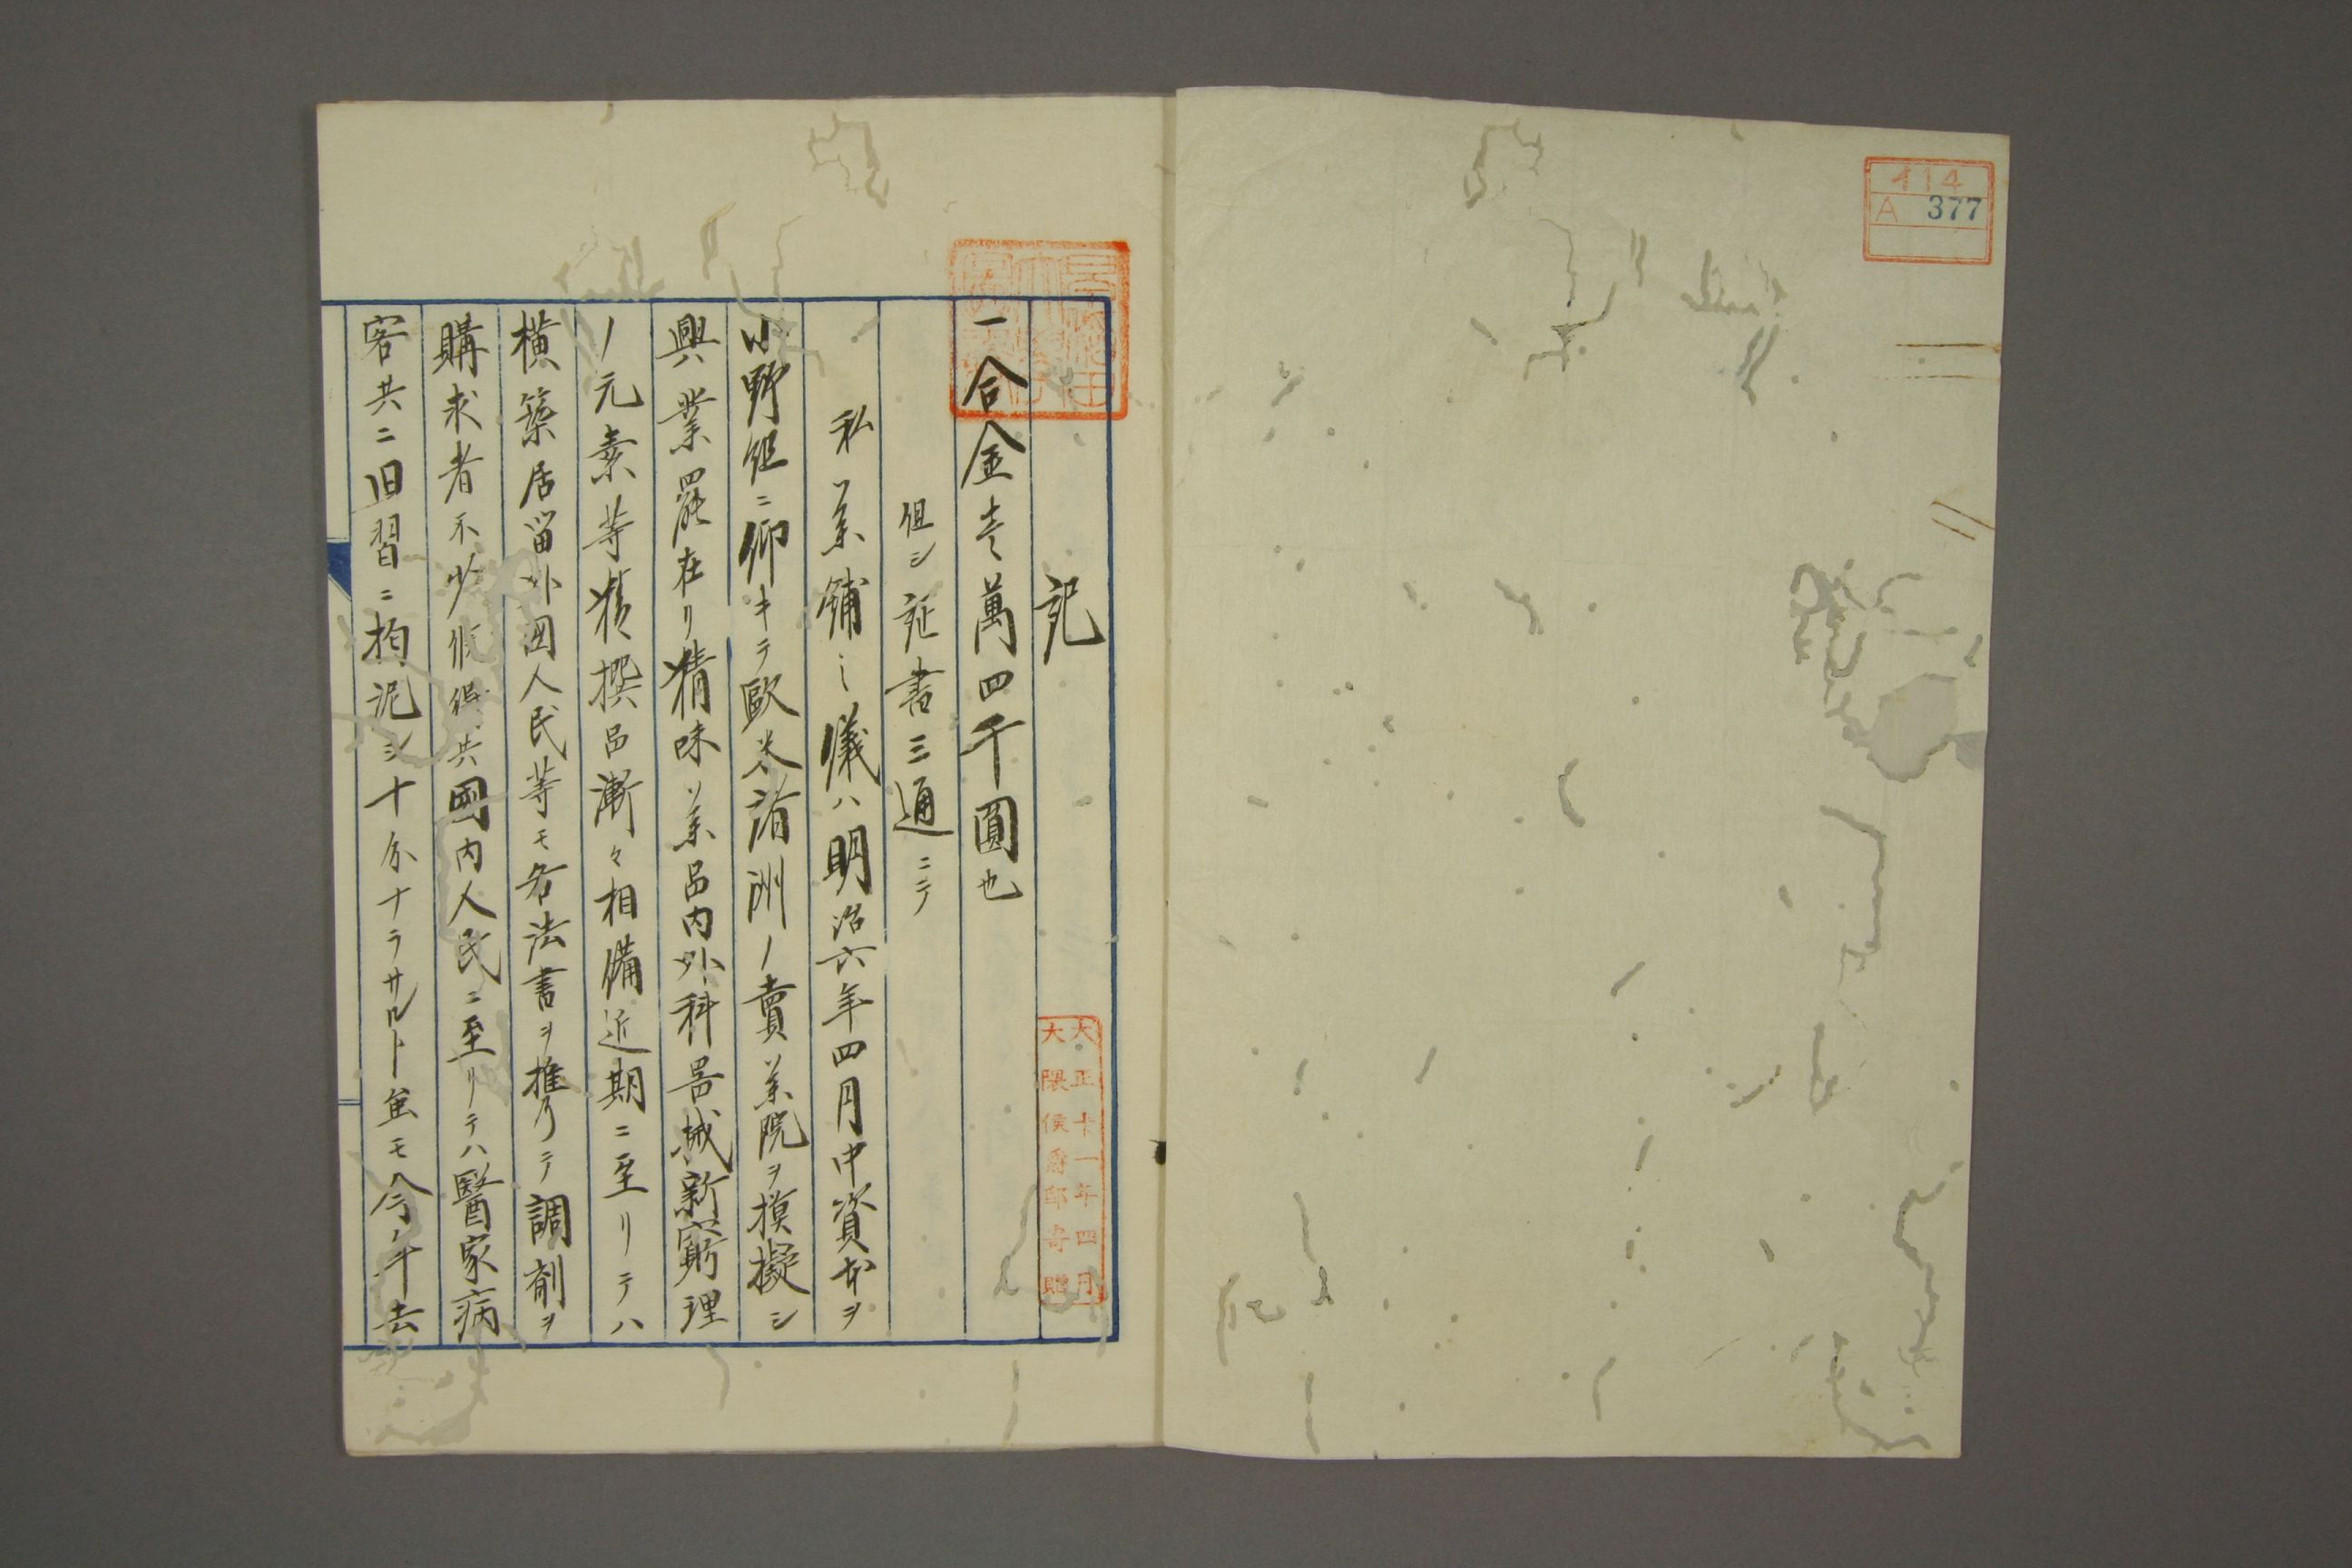 414
A 377
記
一合金壱萬四千圓也
但シ証書三通ニテ
私薬舗之儀ハ明治六年四月中資本ヲ
小野組ニ仰キテ歐米諸洲ノ賣薬院ヲ摸擬シ
興業罷在リ精味薬品内外科噐械新窮理
ノ元素等精撰品漸々相備近期ニ至リテハ
横築居留外國人民等モ各法書ヲ携ヘテ調剤ヲ
購求者不少候得共國内人民ニ至リテハ醫家病
客共ニ旧習ニ拘泥シ十分ナラサルト雖モ今ノ年去
大正十一年四月
大隈侯爵邸寄贈